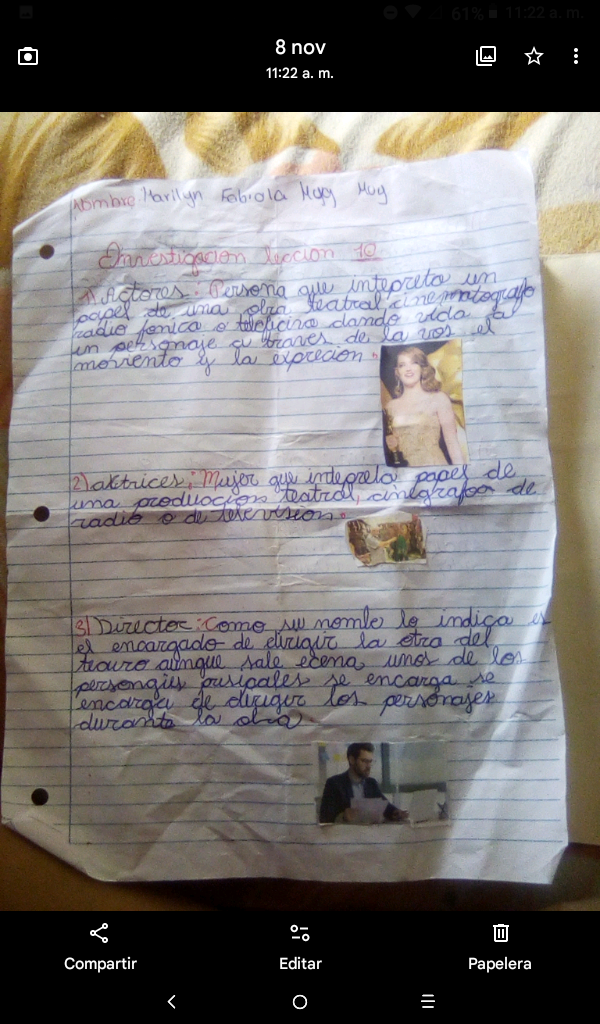 61% 11:22 a. m.
8 nov
11:22 a. m.
Nombre Marilyn Fabiola
Investigacion leccion 10
1) Actores: Persona que intepreta un
papel de una obra teatral cinematografo
radio fonica o teleficino dando vida a
un personaje a traves de la vos el
moviento y la exprecion.
2) aktrices: Mujer que intepreta papel de
una produccion teatral, cinegrafor de
radio o de television.
3) Director: Como su nomle lo indica es
el encargado de dirigir la otra del
teauro aunque sale ecena unos de los
personGies prisigales se encarga se
encarga de dirigir los personajes
durante la obra
Compartir
Editar
Papelera